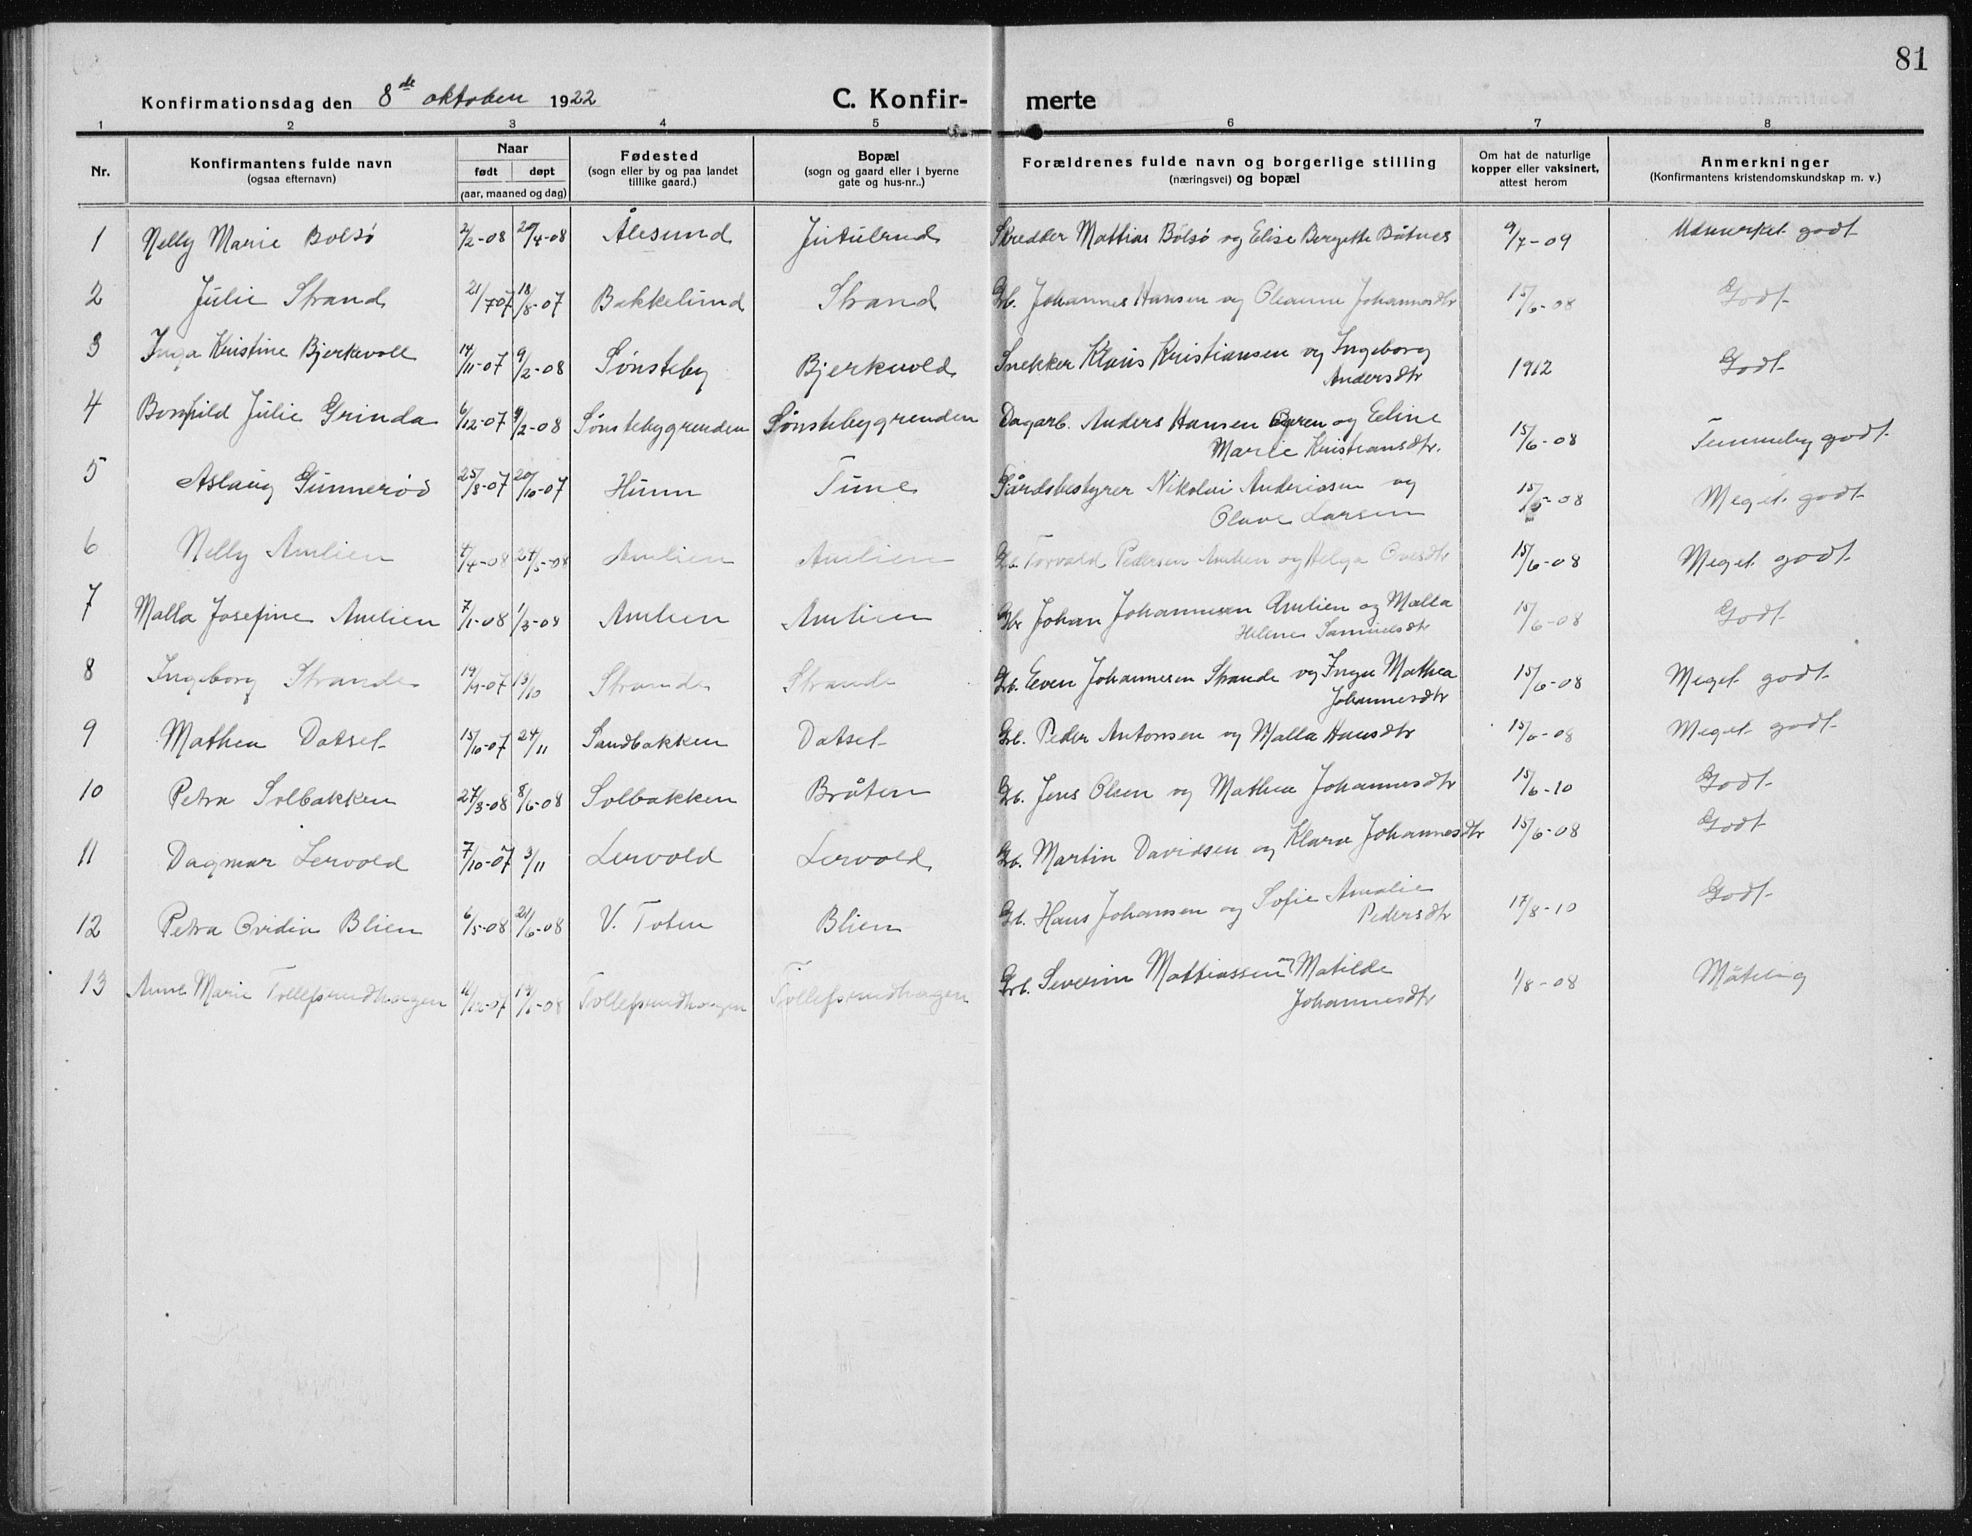 81
Konfirmationsdag den 8de oktober 1922 C. Konfir- merte
1 2 3 4 5 6 7 8
Nr. Konfirmantens fulde navn (ogsaa efternavn) Naar født døpt (aar, maaned og dag) Fødested (sogn eller by og paa landet tillike gaard.) Bopæl (sogn og gaard eller i byerne gate og hus-nr..) Forældrenes fulde navn og borgerlige stilling (næringsvei) og bopæl Om hat de naturlige kopper eller vaksinert, attest herom Anmerkninger (Konfirmantens kristendomskundskap m. v.)
1 Nelly Marie Bolsø 2/2-08 20/4-08 Ålesund Jutulrud Skredder Mattias Bolsø og Elise Bergette Båtnes 9/7-09 Udmerket godt
2 Julie Strand 21/7 07 18/8-07 Bakkelund Strand Gb. Johannes Hansen og Oleanna Johannesdtr 15/6-08 Godt
3 Inga Kristine Bjerkevoll 14/11-07 9/2-08 Sønsteby Bjerkvold Snekker Klaus Kristiansen og Ingeborg
Andersdtr 1912 Godt
4 Borghild Julie Grinda 6/12-07 9/2-08 Sønstebygrenden Sønstebygrenden Dagarb. Anders Hansen og Eline
Marie Kristiansdtr. 15/6-08 Temmelig godt
5 Aslaug Gunnerød 25/8-07 20/10-07 Hunn Tune Gårdsbestyrer Nikolai Anderssen og
Olave Larsen 15/5-08 Meget godt
6 Nelly Amlien 4/4-08 24/5-08 Amlien Amlien Gb. Torvald Pedersen Amlien og Helga Ovesdtr 15/6-08 Meget godt
7 Malla Josefine Amlien 7/1-08 1/3-08 Amlien Amlien Gbr Johan Johannesen Amlien og Malla
Helene Samuelsdtr 15/6-08 Godt
8 Ingeborg Strande 14/9-07 13/10 Strande Strande Gb. Even Johannesen Strande og Inga Mathea
Johannesdtr 15/6-08 Meget godt
9 Mathea Dotset 15/10-07 24/11 Sandbakken Dotset Gb. Peder Antonsen og Malla Hansdtr 15/6-08 Meget godt
10 Petra Solbakken 27/3-08 8/6-08 Solbakken Bråten Gb. Jens Olsen og Mathea Johannesdtr 15/6-10 Godt
11 Dagmar Lervold 7/10-07 3/11 Lervold Lervold Gb. Martin Davidsen og Klara Johannesdtr 15/6-08 Godt
12 Petra Ovidia Blien 6/5-08 21/6-08 V. Toten Blien Gb. Hans Johansen og Sofie Amalie
Pedersdtr 17/8-10 Godt
13 Anne Marie Tollefsrudhagen 11/12-07 19/1-08 Tollefsrudhagen Tollefsrudhagen Gb. Severin Mattiassen Matilde
Johannesdtr 1/8-08 Måtelig